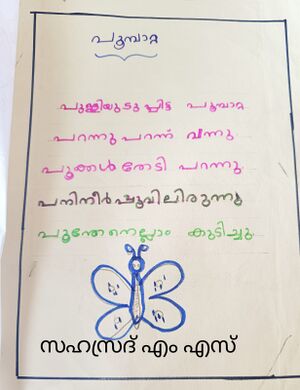 പൂമ്പാറ്റ
പുള്ളിയുടുപ്പിട്ട പൂമ്പാറ്റ
പറന്നു പറന്ന് വന്നു
പൂക്കൾ തേടി പറന്നു.
പനിനീർ പൂവിലിരുന്നു
പൂന്തേനെല്ലാം കുടിച്ചു.
സഹസ്രദ് എം എസ്